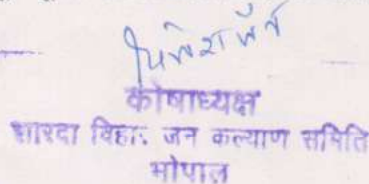 कोषाध्यक्ष
शारदा विहार जन कल्याण समिति
भोपाल